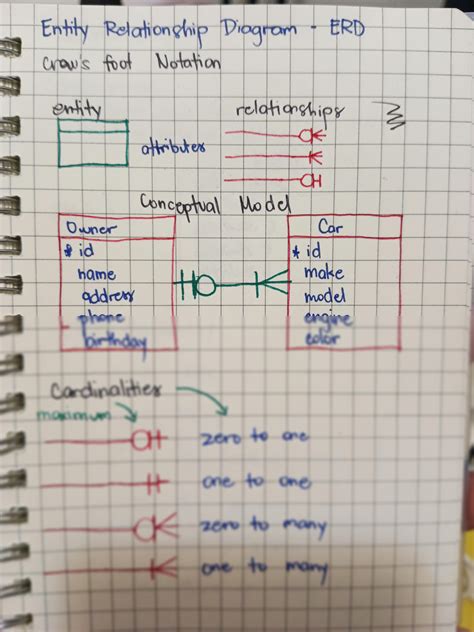 Entity Relationship Diagram - ERD
Crow's foot Notation
entity
relationships
attributes
Conceptual Model
Owner
* id
name
address
phone
birthday
Car
* id
make
model
engine
color
Cardinalities
maximum
zero to one
one to one
zero to many
one to many